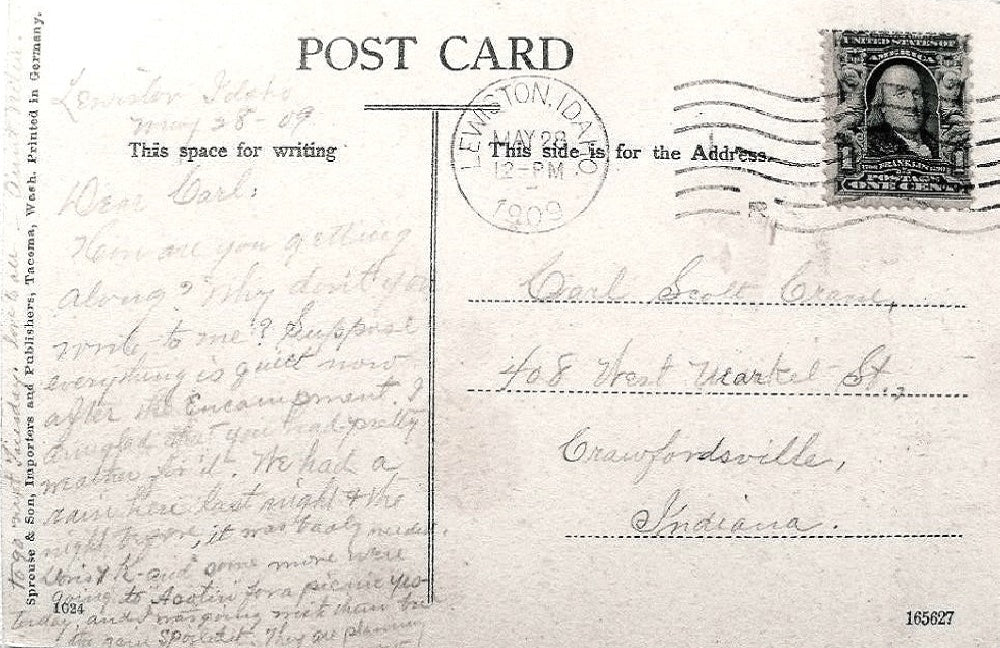 POST CARD
This space for writing
This side is for the Address.
LEWISTON, IDAHO
MAY 28
12-PM
1909
UNITED STATES OF
AMERICA
1 1
FRANKLIN
POSTAGE
ONE CENT
Lewiston Idaho
May 28-09
Dear Carl:
How are you getting
along? Why don't you
write to me? Suppose
everything is quiet now
after the Encampment. I
am glad that you had pretty
weather for it. We had a
rain here last night & the
night before, it was badly needed.
Doris & K- and some more were
going to Asotin for a picnic yes-
terday, and I was going with them but
the rain spoiled it. They are planning
to go next Tuesday. Love to all.
Carl Scott Crane,
408 West Market St.,
Crawfordsville,
Indiana.
Sprouse & Son, Importers and Publishers, Tacoma, Wash. Printed in Germany.
1624
165627